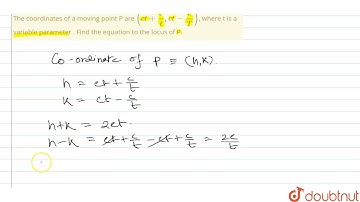 The coordinates of a moving point P are (ct + c/t, ct − c/t), where t is a
variable parameter . Find the equation to the locus of P.
Co-ordinate of P ≡ (h,k)
h = ct + c/t
k = ct − c/t
h+k = 2ct.
h−k = ct + c/t − ct + c/t = 2c/t
doubtnut